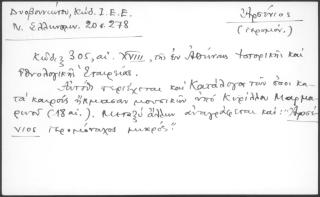 Δυοβουνιώτου, Κώδ. Ι. Ε. Ε.
Ν. Ἑλληνομν. 20 σ. 278
Ἀρσένιος
(ἱερομόν.)
Κῶδιξ 305, αἰ. XVIII, τῆς ἐν Ἀθήναις Ἱστορικῆς καὶ
Ἐθνολογικῆς Ἑταιρείας.
Αὐτόθι περιέχεται καὶ Κατάλογος τῶν ὅσοι κα-
τὰ καιροὺς ἤκμασαν μουσικῶν ὑπὸ Κυρίλλου Μαρμα-
ρηνοῦ (18 αἰ.). Μεταξὺ ἄλλων ἀναγράφεται καί: "Ἀρσέ-
νιος ἱερομόναχος μικρός."